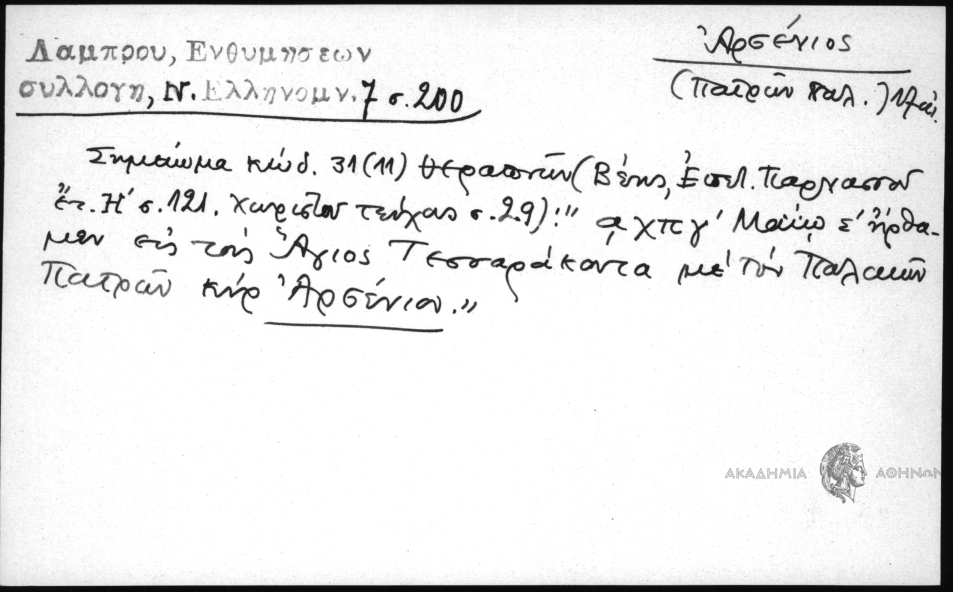 Λαμπρου, Ενθυμησεων
συλλογη, Ν. Ελληνομν. 7 σ. 200
Ἀρσένιος
(Πατρῶν παλ.)
Σημείωμα κώδ. 31(11) Θεραπνῶν (Βέης, Ἐπετ. Παρνασσοῦ
ἔτ. Η' σ. 121. χωριστὸν τεῦχος σ. 29): "αχπγ' Μαΐῳ ς' ἤρθα-
μεν εἰς τοὺς Ἅγιος Τεσσαράκοντα μὲ τὸν Παλαιῶν
Πατρῶν κὺρ Ἀρσένιον."
ΑΚΑΔΗΜΙΑ ΑΘΗΝΩΝ